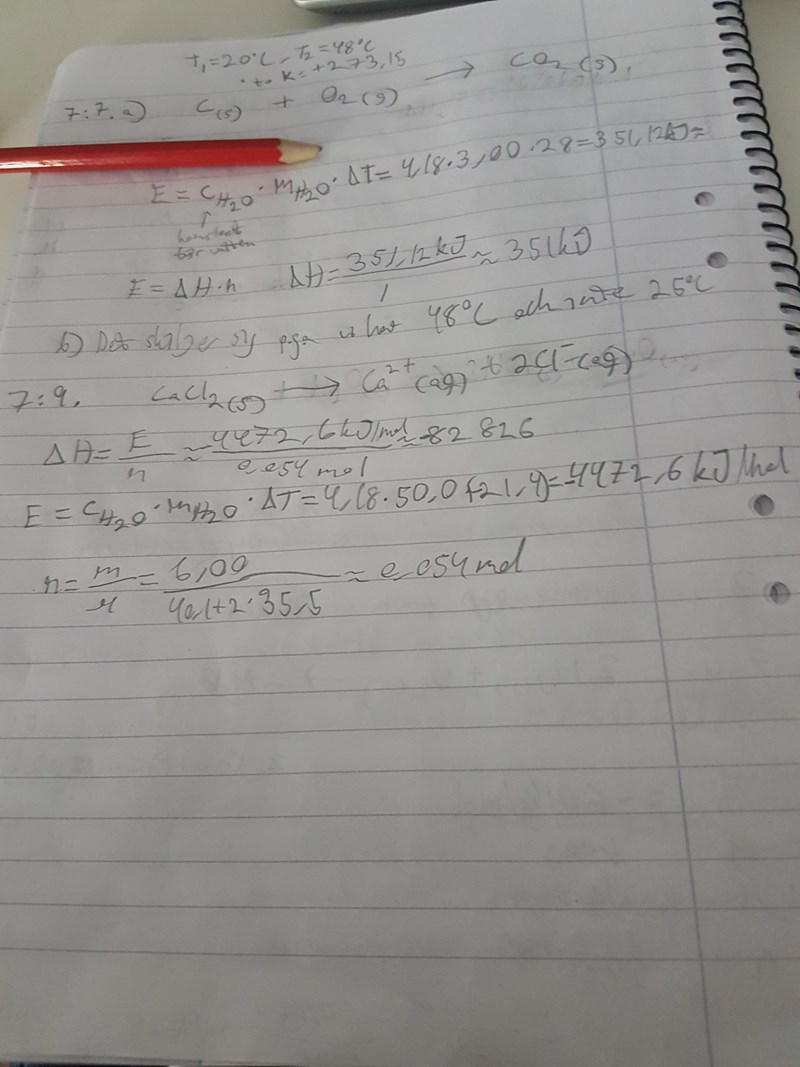 T₁=20°C, T₂=48°C
to K: +273,15
7:7. a) C(s) + O₂(g) → CO₂(g),
E = C_H₂O · m_H₂O · ΔT = 4,18·3,00·28=351,12kJ≈
konstant
för vatten
E = ΔH·n ΔH = 351,12kJ/1 ≈ 351kJ
b) Det 48°C och inte 25°C
7:9. CaCl₂(s) → Ca²⁺(aq) + 2Cl⁻(aq)
ΔH = E/n ≈ -4472,6kJ/mol/0,054mol ≈ -82826
E = C_H₂O · m_H₂O · ΔT = 4,18·50,0(-21,4)=-4472,6 kJ/mol
n = m/M = 6,00/40,1+2·35,5 ≈ 0,054 mol